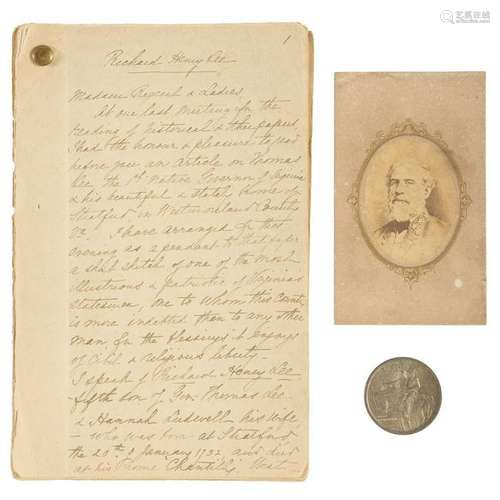 艺典在线
yidianart.com
1
Richard Henry Lee
Madam Regent & Ladies
At our last meeting for the
reading of historical & other papers
I had the honour & pleasure to read
before you an Article on Thomas
Lee the 1st native Governor of Virginia
& his beautiful & stately home of
Stratford in Westmoreland County
Va. I have arranged for this
evening as a pendant to that paper
a short sketch of one of the most
illustrious & patriotic of Virginia's
Statesmen, one to whom this Country
is more indebted than to any other
man for the blessings it enjoys
of civil & religious liberty.
I speak of Richard Henry Lee
fifth son of Gov. Thomas Lee
& Hannah Ludwell his wife,
- who was born at Stratford
the 20th of January 1732 and died
at his home Chantilly, West-